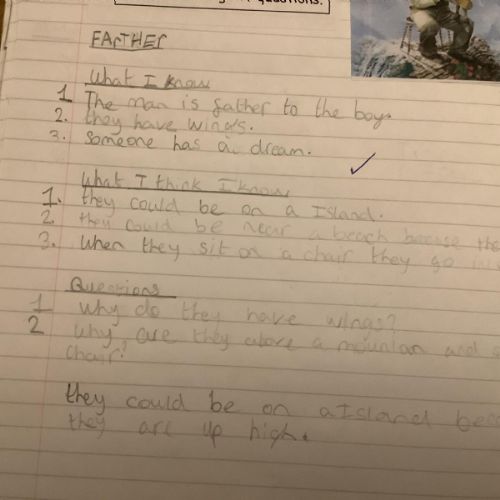 questions.
FARTHER
What I know
1 The man is father to the boy.
2. they have wings.
3. Someone has a dream.
What I think I know
1. they could be on a Island.
2. they could be near a beach becuse the
3. When they sit on a chair they go
Questions
1 Why do they have wings?
2 Why are they above a mountan and
chair?
they could be on a Island bec
they are up high.